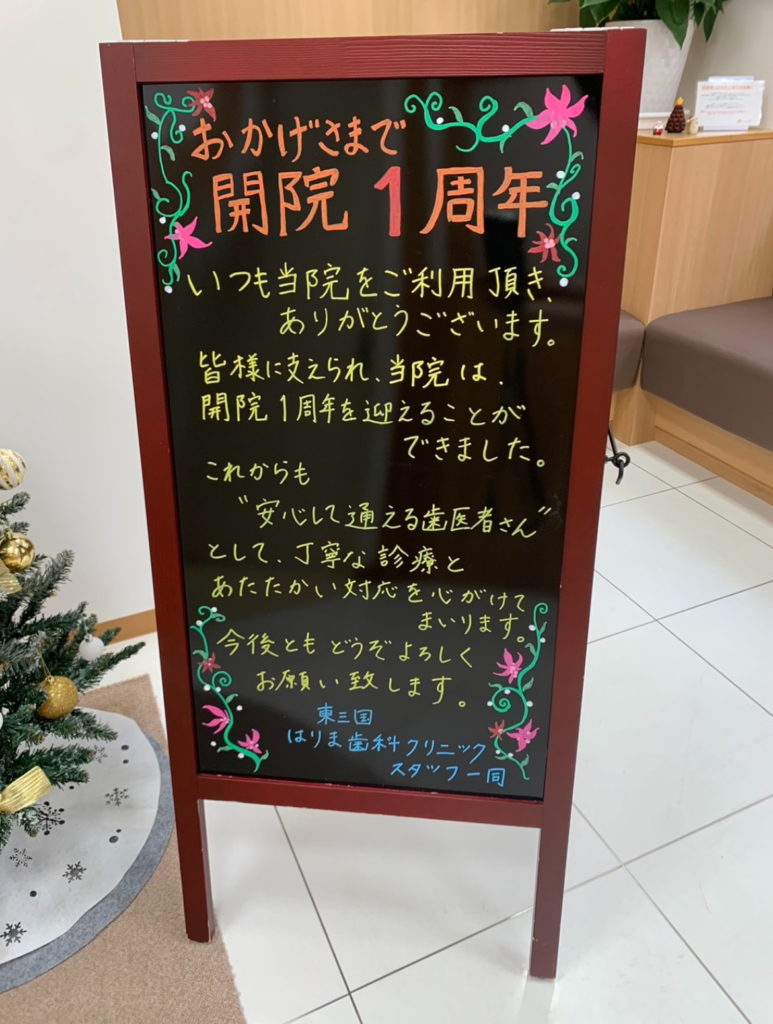 おかげさまで
開院1周年
いつも当院をご利用頂き、
ありがとうございます。
皆様に支えられ、当院は、
開院1周年を迎えることが
できました。
これからも
“安心して通える歯医者さん”
として、丁寧な診療と
あたたかい対応を心がけて
まいります。
今後ともどうぞよろしく
お願い致します。
東三国
はりま歯科クリニック
スタッフ一同